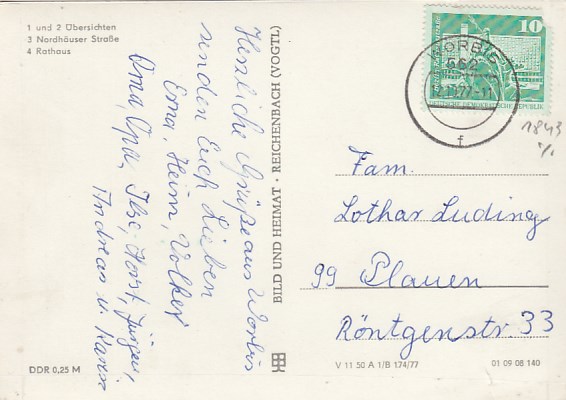 1 und 2 Übersichten
3 Nordhäuser Straße
4 Rathaus
Herzliche Grüße aus Worbis
senden Euch Lieben
Erna, Heini, Volker
Oma, Opa, Ilse, Horst, Jürgen,
Andreas u. Karin
DDR 0,25 M
BILD UND HEIMAT · REICHENBACH (VOGTL)
10
WORBIS
562
12.10.77-11
f
DEUTSCHE DEMOKRATISCHE REPUBLIK
1843
Fam.
Lothar Luding
99 Plauen
Röntgenstr. 33
V 11 50 A 1/B 174/77
01 09 08 140